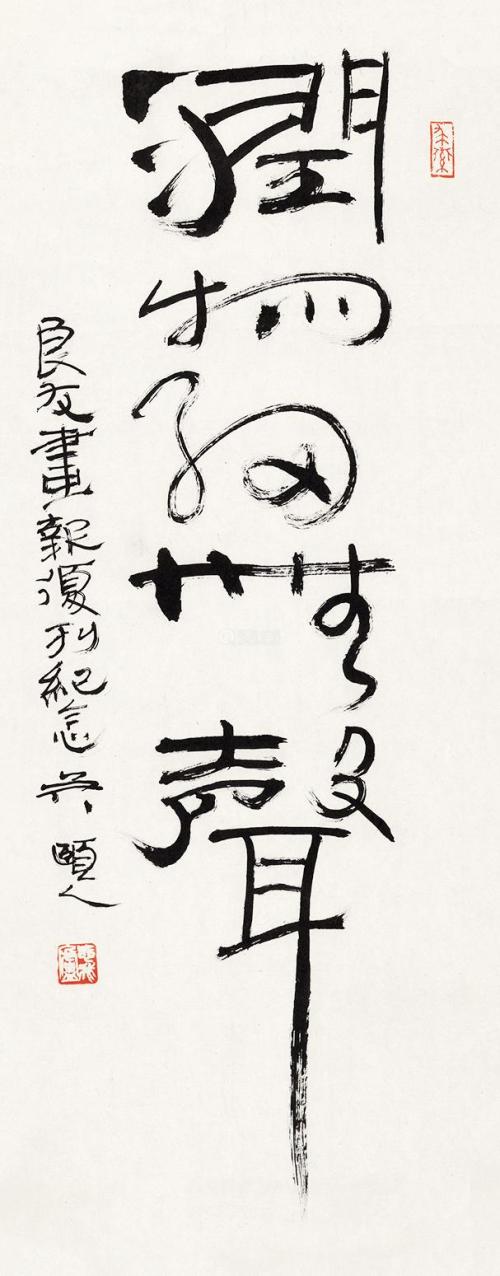 潤物細無聲
良友畫報復刊紀念 吳頤人